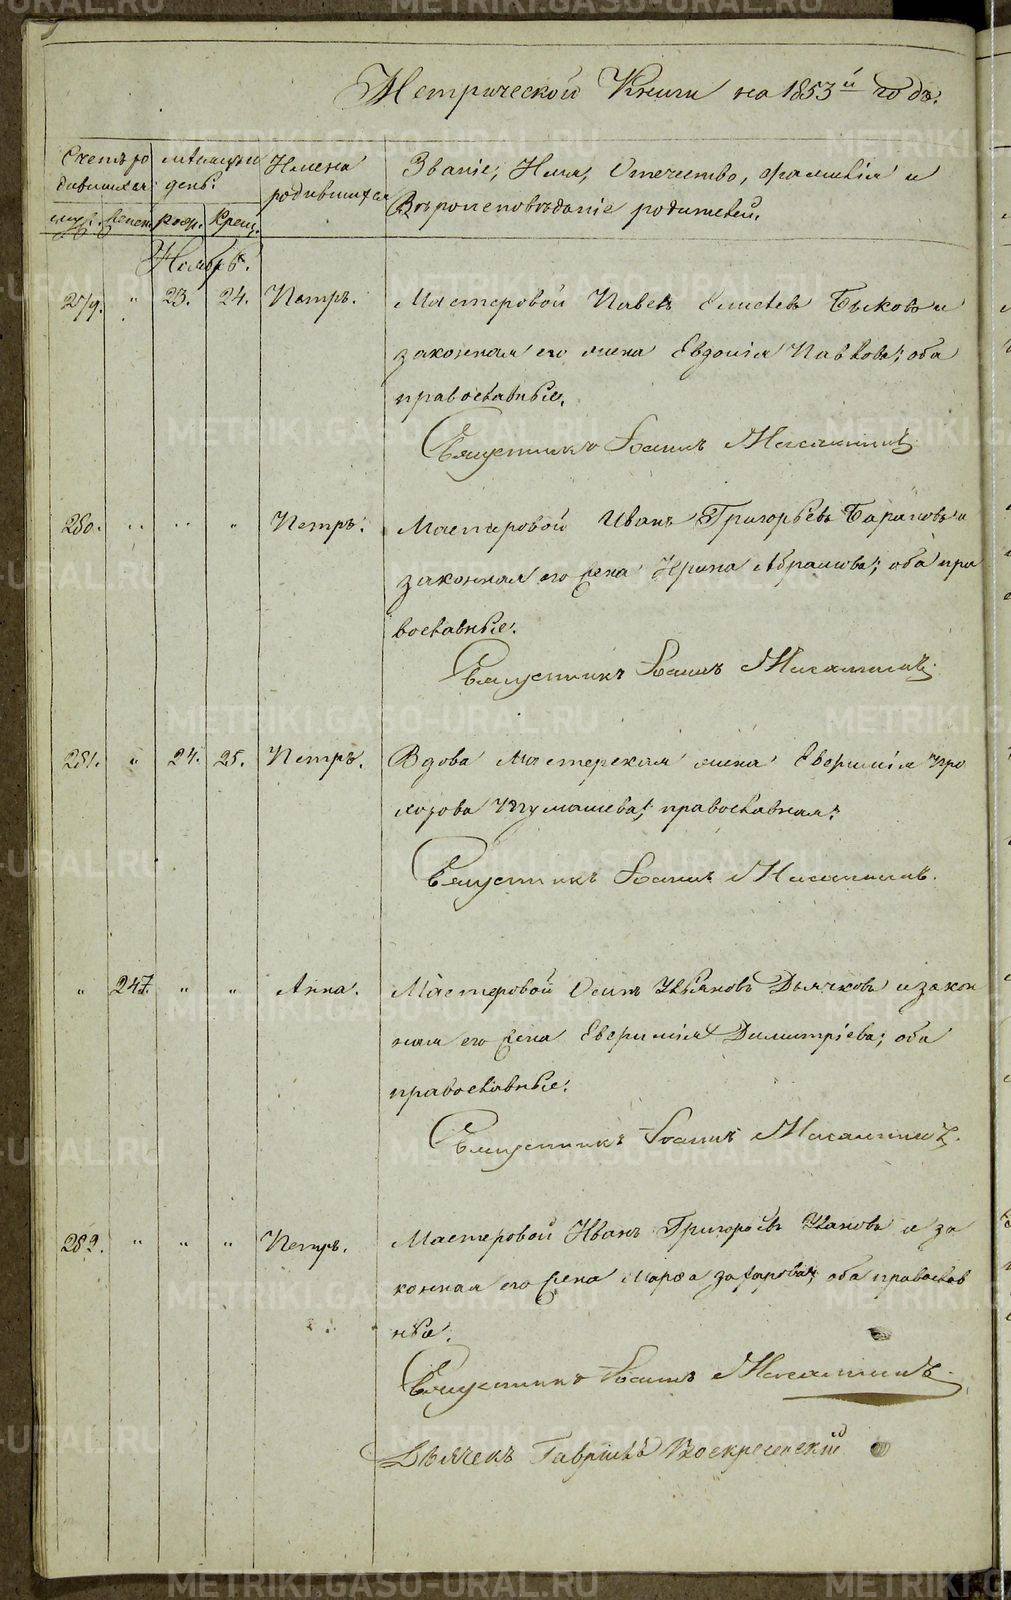 Метрической Книги на 1853й годъ.
Счетъ ро
дившихся
Мѣсяцъ и
день.
Имена
родившихся
Званіе, Имя, Отчество, фамилія и
Вѣроисповѣданіе родителей.
муж. женск. рожд. Крещ.
Ноябрь.
279. " 23. 24. Петръ. Мастеровой Павелъ Елисѣевъ Быковъ и
законная его жена Евдокія Павлова; оба
православные.
Священникъ Іоаннъ
280. " " " Петръ. Мастеровой Иванъ Григорьевъ Барановъ и
законная его жена Ирина Абрамова; оба пра
вославные.
Священникъ Іоаннъ
281. " 24. 25. Петръ. Вдова мастерская жена Евфимія Про
хорова Шумашева; православная.
Священникъ Іоаннъ
" 247. " " Анна. Мастеровой Осипъ Ульяновъ Дьячковъ и закон
ная его жена Евфимія Димитріева; оба
православные.
Священникъ Іоаннъ
282. " " " Петръ. Мастеровой Иванъ Григорьевъ и за
конная его жена Марфа Захарова; оба православ
ные.
Священникъ Іоаннъ
Дьячекъ Гавріилъ Воскресенскій
METRIKI.GASO-URAL.RU